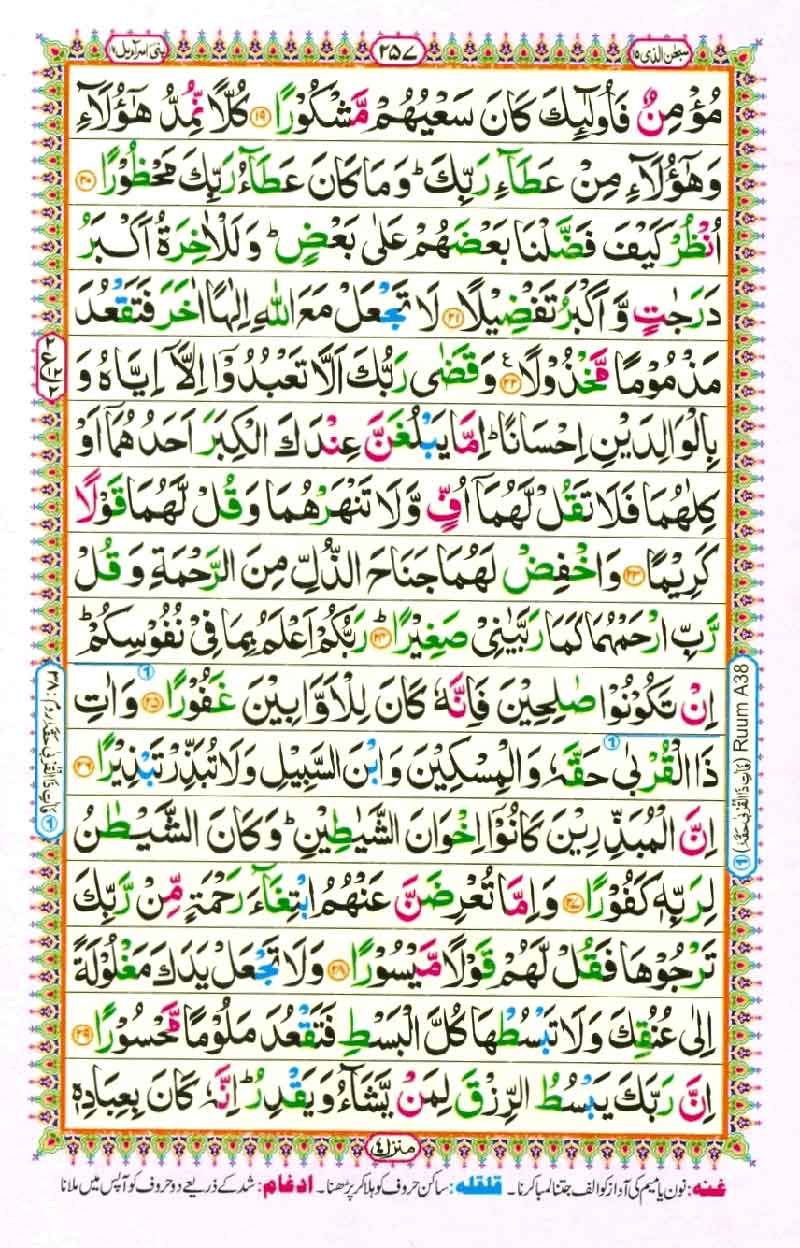 سبحٰن الذی ۱۵
۲۵۷
بنی اسرآءیل ۱۷
مُؤْمِنٌ فَاُولٰٓئِكَ كَانَ سَعْیُهُمْ مَّشْكُوْرًا ۝۱۹ كُلًّا نُّمِدُّ هٰۤؤُلَآءِ
وَهٰۤؤُلَآءِ مِنْ عَطَآءِ رَبِّكَ ؕ وَمَا كَانَ عَطَآءُ رَبِّكَ مَحْظُوْرًا ۝۲۰
اُنْظُرْ كَیْفَ فَضَّلْنَا بَعْضَهُمْ عَلٰی بَعْضٍ ؕ وَلَلْاٰخِرَةُ اَكْبَرُ
دَرَجٰتٍ وَّاَكْبَرُ تَفْضِیْلًا ۝۲۱ لَا تَجْعَلْ مَعَ اللّٰهِ اِلٰهًا اٰخَرَ فَتَقْعُدَ
مَذْمُوْمًا مَّخْذُوْلًا ۝۲۲ وَقَضٰی رَبُّكَ اَلَّا تَعْبُدُوْۤا اِلَّاۤ اِیَّاهُ وَ
بِالْوَالِدَیْنِ اِحْسَانًا ؕ اِمَّا یَبْلُغَنَّ عِنْدَكَ الْكِبَرَ اَحَدُهُمَاۤ اَوْ
كِلٰهُمَا فَلَا تَقُلْ لَّهُمَاۤ اُفٍّ وَّلَا تَنْهَرْهُمَا وَقُلْ لَّهُمَا قَوْلًا
كَرِیْمًا ۝۲۳ وَاخْفِضْ لَهُمَا جَنَاحَ الذُّلِّ مِنَ الرَّحْمَةِ وَقُلْ
رَّبِّ ارْحَمْهُمَا كَمَا رَبَّیٰنِیْ صَغِیْرًا ؕ ۝۲۴ رَبُّكُمْ اَعْلَمُ بِمَا فِیْ نُفُوْسِكُمْ ؕ
اِنْ تَكُوْنُوْا صٰلِحِیْنَ فَاِنَّهٗ كَانَ لِلْاَوَّابِیْنَ غَفُوْرًا ۝۲۵ وَاٰتِ
ذَا الْقُرْبٰی حَقَّهٗ وَالْمِسْكِیْنَ وَابْنَ السَّبِیْلِ وَلَا تُبَذِّرْ تَبْذِیْرًا ۝۲۶
اِنَّ الْمُبَذِّرِیْنَ كَانُوْۤا اِخْوَانَ الشَّیٰطِیْنِ ؕ وَكَانَ الشَّیْطٰنُ
لِرَبِّهٖ كَفُوْرًا ۝۲۷ وَاِمَّا تُعْرِضَنَّ عَنْهُمُ ابْتِغَآءَ رَحْمَةٍ مِّنْ رَّبِّكَ
تَرْجُوْهَا فَقُلْ لَّهُمْ قَوْلًا مَّیْسُوْرًا ۝۲۸ وَلَا تَجْعَلْ یَدَكَ مَغْلُوْلَةً
اِلٰی عُنُقِكَ وَلَا تَبْسُطْهَا كُلَّ الْبَسْطِ فَتَقْعُدَ مَلُوْمًا مَّحْسُوْرًا ۝۲۹
اِنَّ رَبَّكَ یَبْسُطُ الرِّزْقَ لِمَنْ یَّشَآءُ وَیَقْدِرُ ؕ اِنَّهٗ كَانَ بِعِبَادِهٖ
Ruum A38 (فَاٰتِ ذَا الْقُرْبٰی حَقَّهٗ)
منزل ۴
غنه: نون یا میم کی آواز کو الف جتنا لمبا کرنا۔ قلقله: ساکن حروف کو ہلا کر پڑھنا۔ ادغام: شد کے ذریعے دو حروف کو آپس میں ملانا